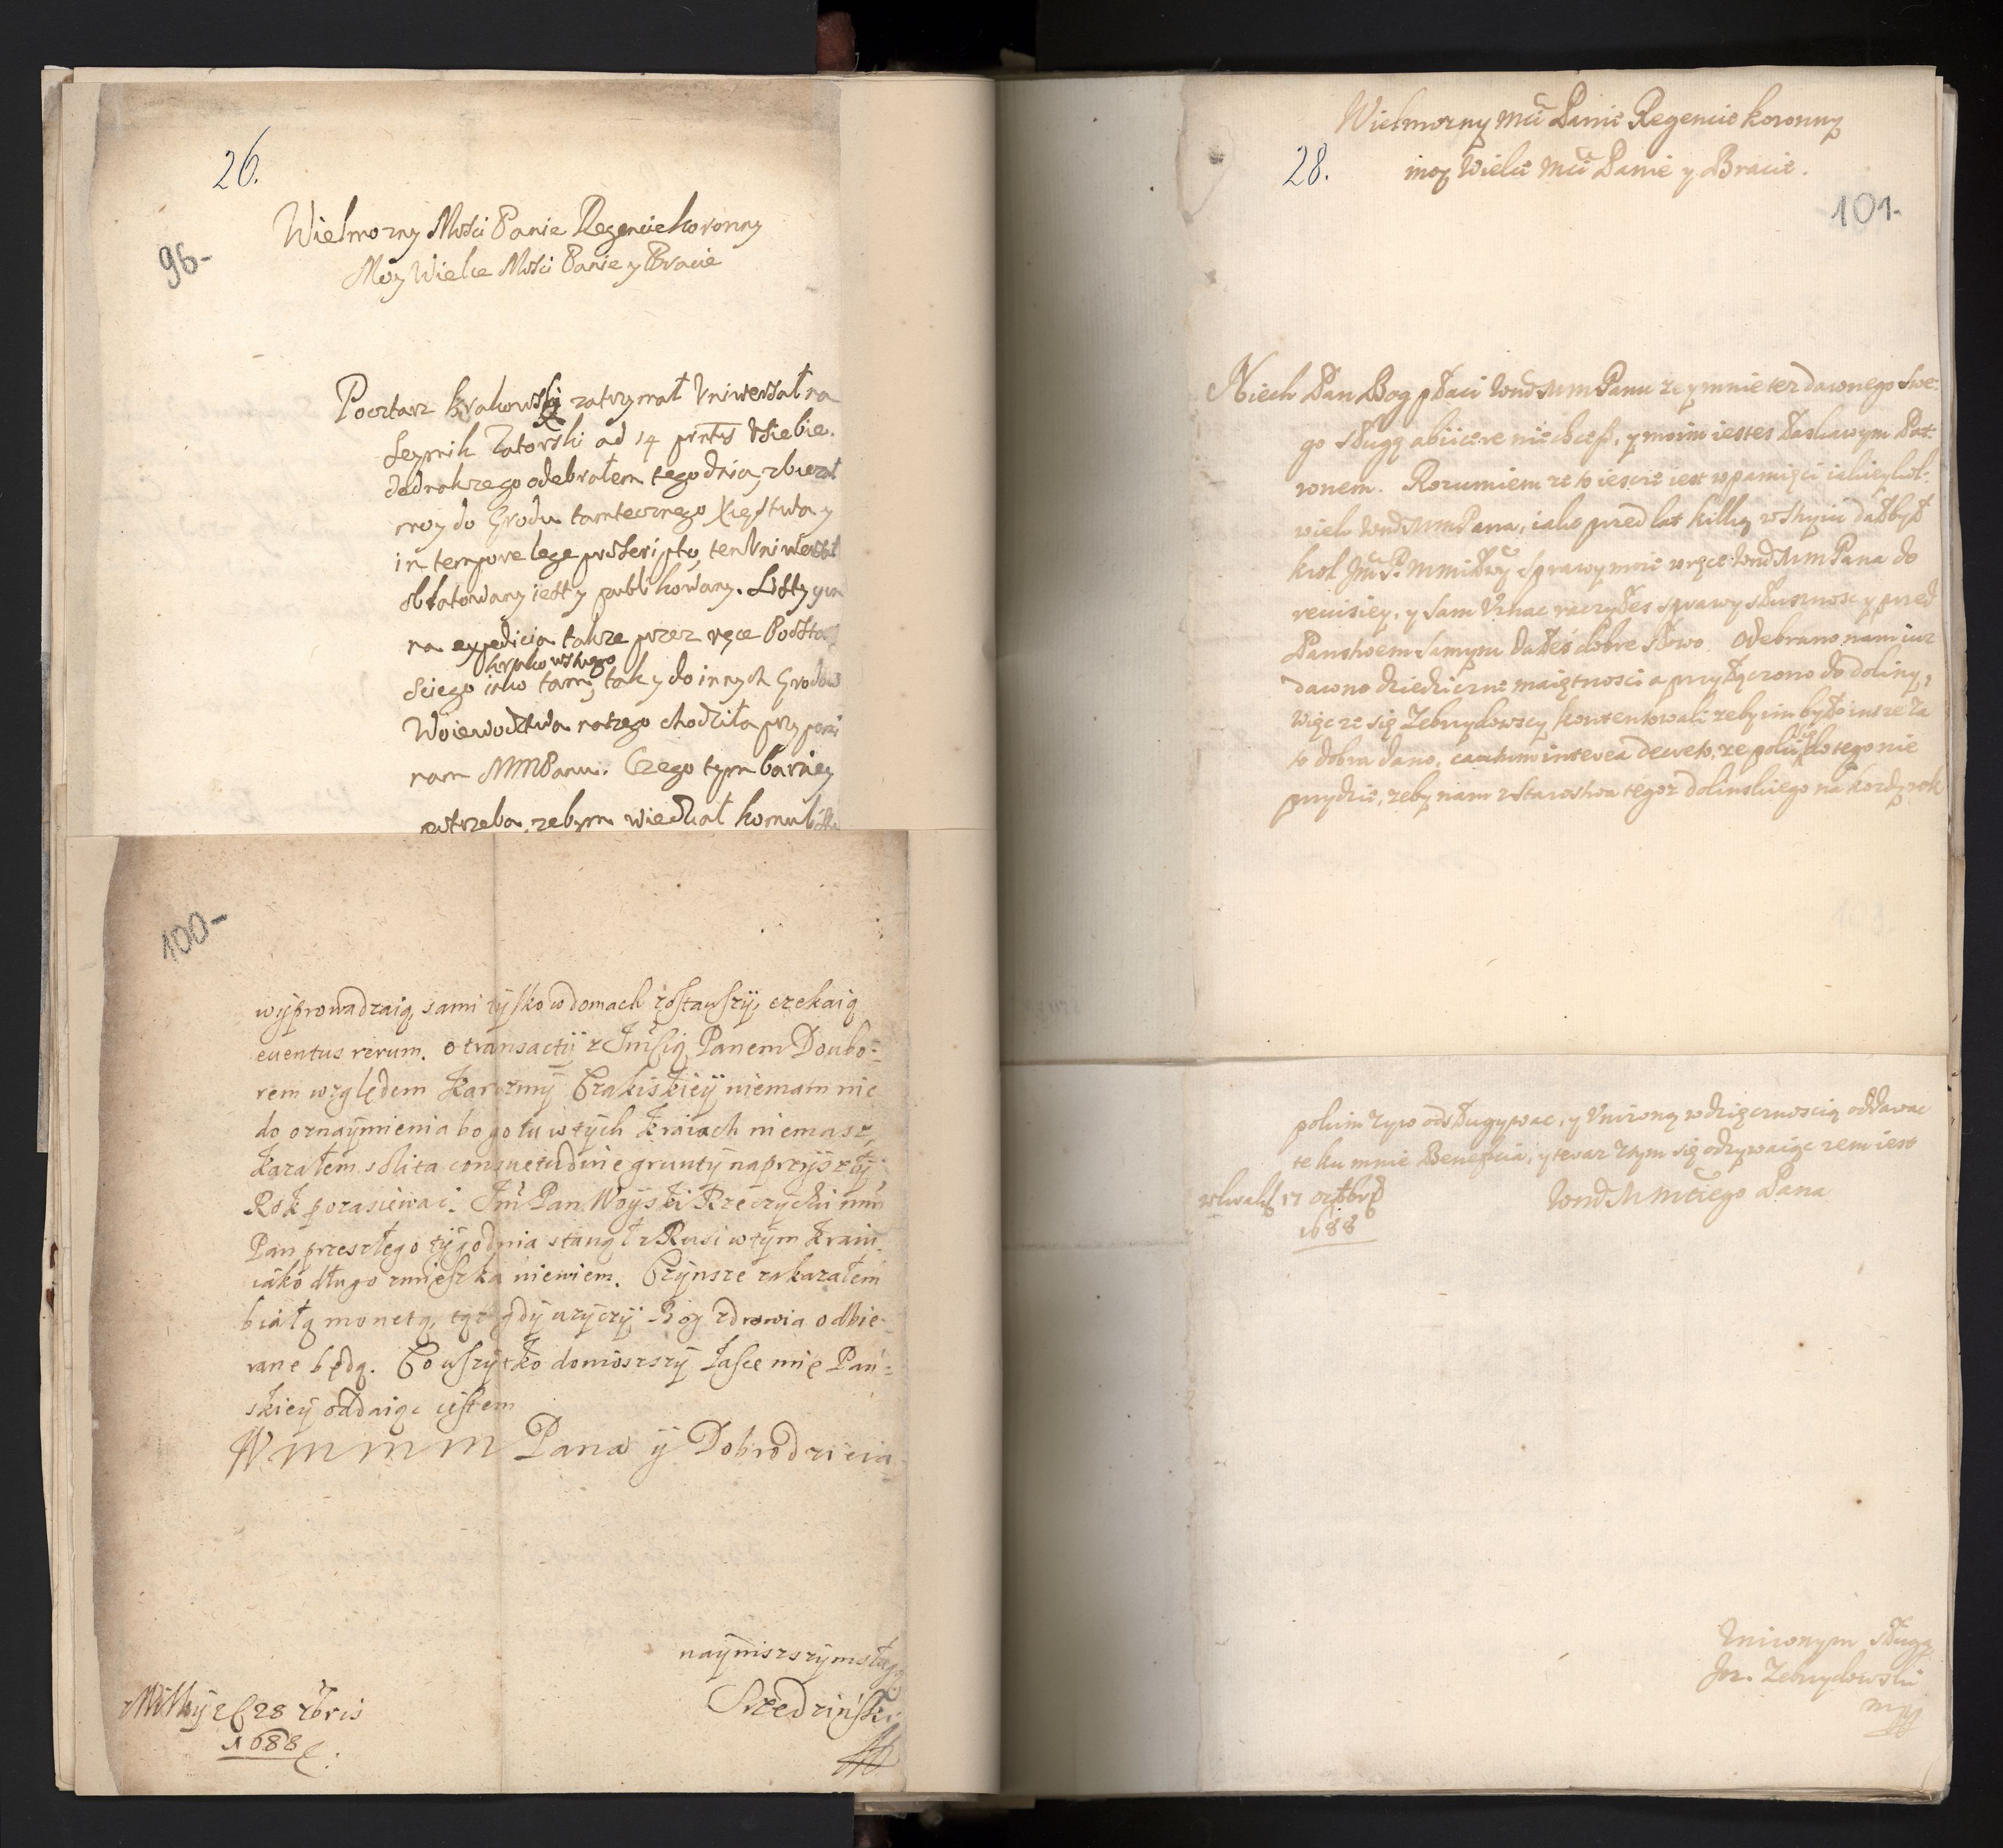 26.
96-
Wielmozny Mości Panie Regencie koronny
Moy Wielce Mości Panie y Bracie
Pocztarz krakowski zatrzymał Vniwersał na
Seymik Zatorski ad 14 prntis Vsiebie.
odebrałem tego dnia,
moy do Grodu tamtecznego Xięstwa y
in tempore lege ten Vniwersał
oblatowany iest y publikowany. Listy
na expedicia także przez ręce
krakowskiego
sciego iako tam, tak y do innych Grodow
Woiewodztwa naszego chodziła
nam MMPanu. Czego tym barziey
potrzeba, zebym wiedział komu
100-
wyprowadzaią, sami tylko w domach zostawszy, czekaią
euentus rerum. o transactij z Jmscią Panem Doubo-
rem względem Karczmy niemam nic
do oznaymienia bo go tu w tych Kraiach niemasz,
Kazałem solita consuetudine grunty na przyszły
Rok pozasiewać. Jmć Pan Woyski Rzeczycki mm
Pan przeszłego tygodnia stanął z Rusi w tym Kraiu
iako długo zmieszka niewiem. Czynsze zakazałem
białą monetą, gdy uzyczy Bog zdrowia odbie-
rane będą. Co wszytko doniozszy łasce mię Pań-
skiey oddaiąc iestem
W m m m Pana y Dobrodzieia
nayniszszym sługą
28 7bris
1688
28.
Wielmozny Mci Panie Regencie koronny
moy Wielce Mci Panie y Bracie.
101-
Niech Pan Bog płaci WmMMPanu ze y mnie tez dawnego swe-
go sługę abiicere nie chcesz, y moim iestes łaskawym Pat-
ronem. Rozumiem ze to ieszcze iest w pamięci
WmMMPana, iako przed lat kilką w Stryiu dał był
krol sprawy moie w ręce WmMMPana do
reuisiey, y sam Vznac raczyłes sprawy słusznosc y przed
Panstwem samym dałes dobre słowo. Odebrano nam iuz
dawno dziedziczne maiętnosci a przyłączono do doliny,
więc ze się Zebrzydowscy kontentowali zeby im było insze za
to dobra dano, cautum interea decreto, ze poki do tego nie
przydzie, zeby nam z Starostwa tegoz dolinskiego na kozdy rok
pokim zyw odsługywac, y Vnizoną wdzięcznoscią oddawac
te ku mnie Beneficia, y teraz z tym się odzywaiąc zem iest
17 octobris
1688
WmMMciego Pana
Vnizonym sługą
Zebrzydowski
mp